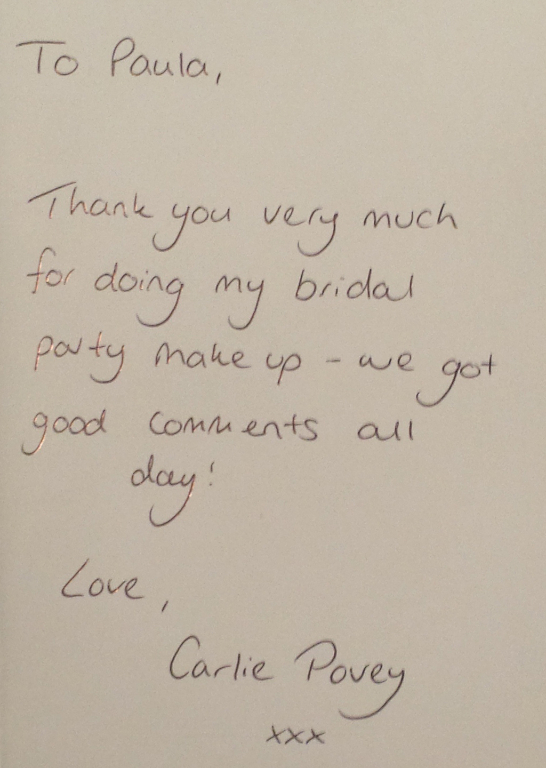 To Paula,
Thank you very much
for doing my bridal
party make up - we got
good comments all
day!
Love,
Carlie Povey
xxx